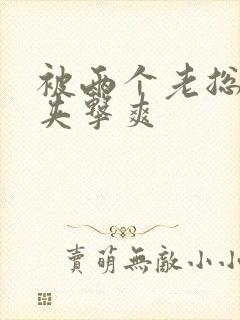 被两个老总
夹击爽
賣萌無敵小小